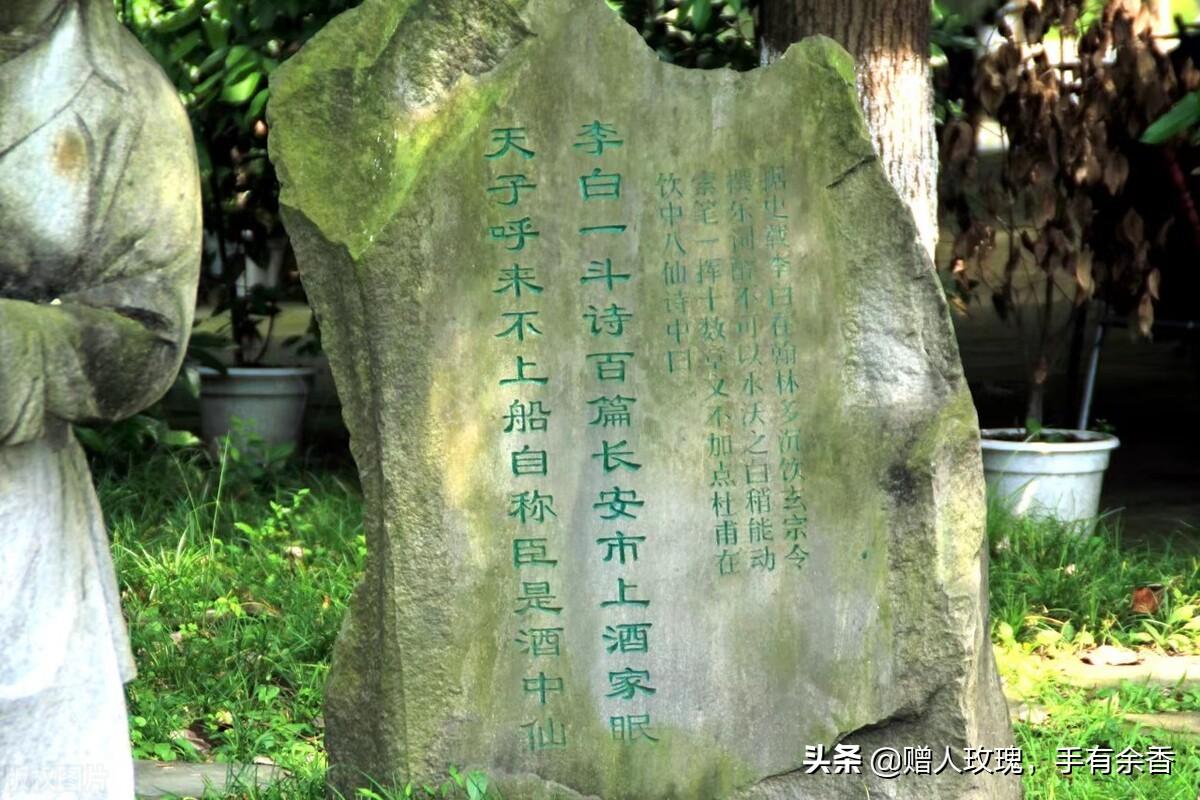 据史载李白在翰林多沉饮玄宗令
撰乐词醉不可以水沃之白稍能动
索笔一挥十数章文不加点杜甫在
饮中八仙诗中曰
李白一斗诗百篇长安市上酒家眠
天子呼来不上船自称臣是酒中仙
头条 @赠人玫瑰，手有余香
版权图片